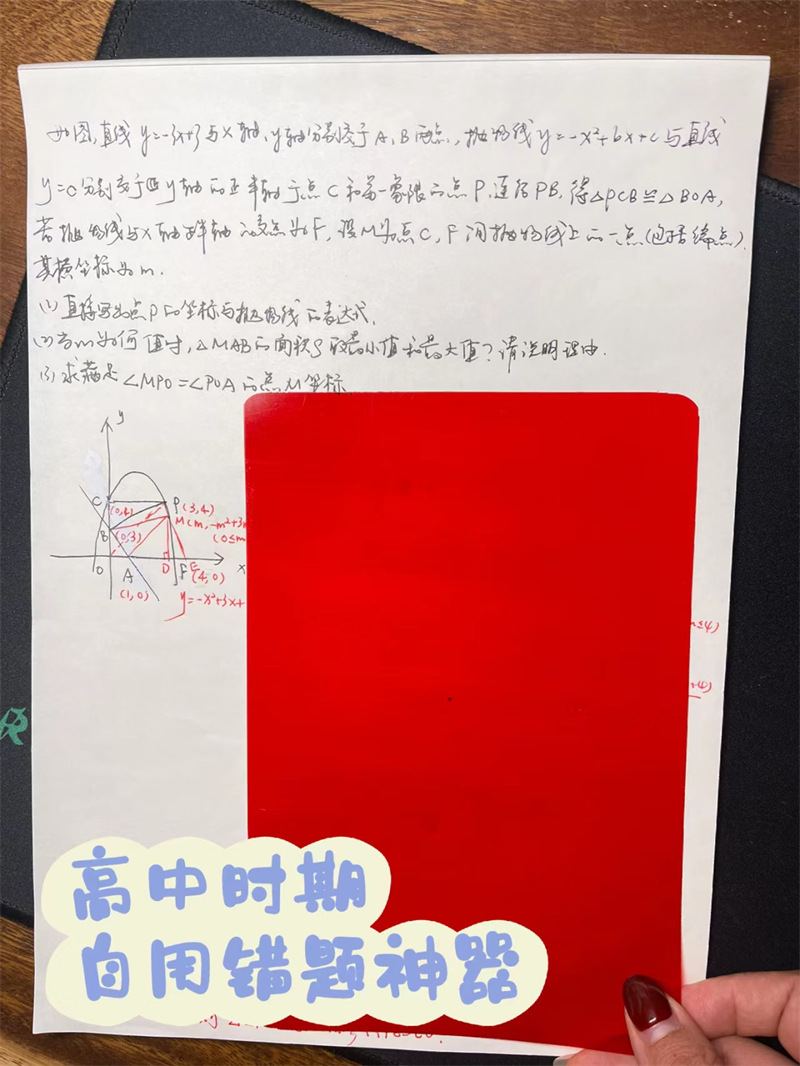 如图,直线y=-3x+3与x轴、y轴分别交于A、B两点,抛物线y=-x²+bx+c与直线
y=c分别交于y轴的正半轴于点C和第一象限的点P,连结PB,得△PCB≌△BOA,
若抛物线与x轴半轴交点为F,设M为点C,F间抛物线上的一点(包括端点)
其横坐标为m.
(1)直接写出点P的坐标与抛物线的表达式.
(2)当m为何值时,△MAB的面积S取最小值和最大值?请说明理由.
(3)求满足∠MPO=∠POA的点M坐标
y
C
(0,4)
P(3,4)
M(m,-m²+3m
(0≤m
B
(0,3)
O
A
D
F
E
x
(4,0)
(1,0)
y=-x²+3x+
≤4)
+4)
高中时期
自用错题神器